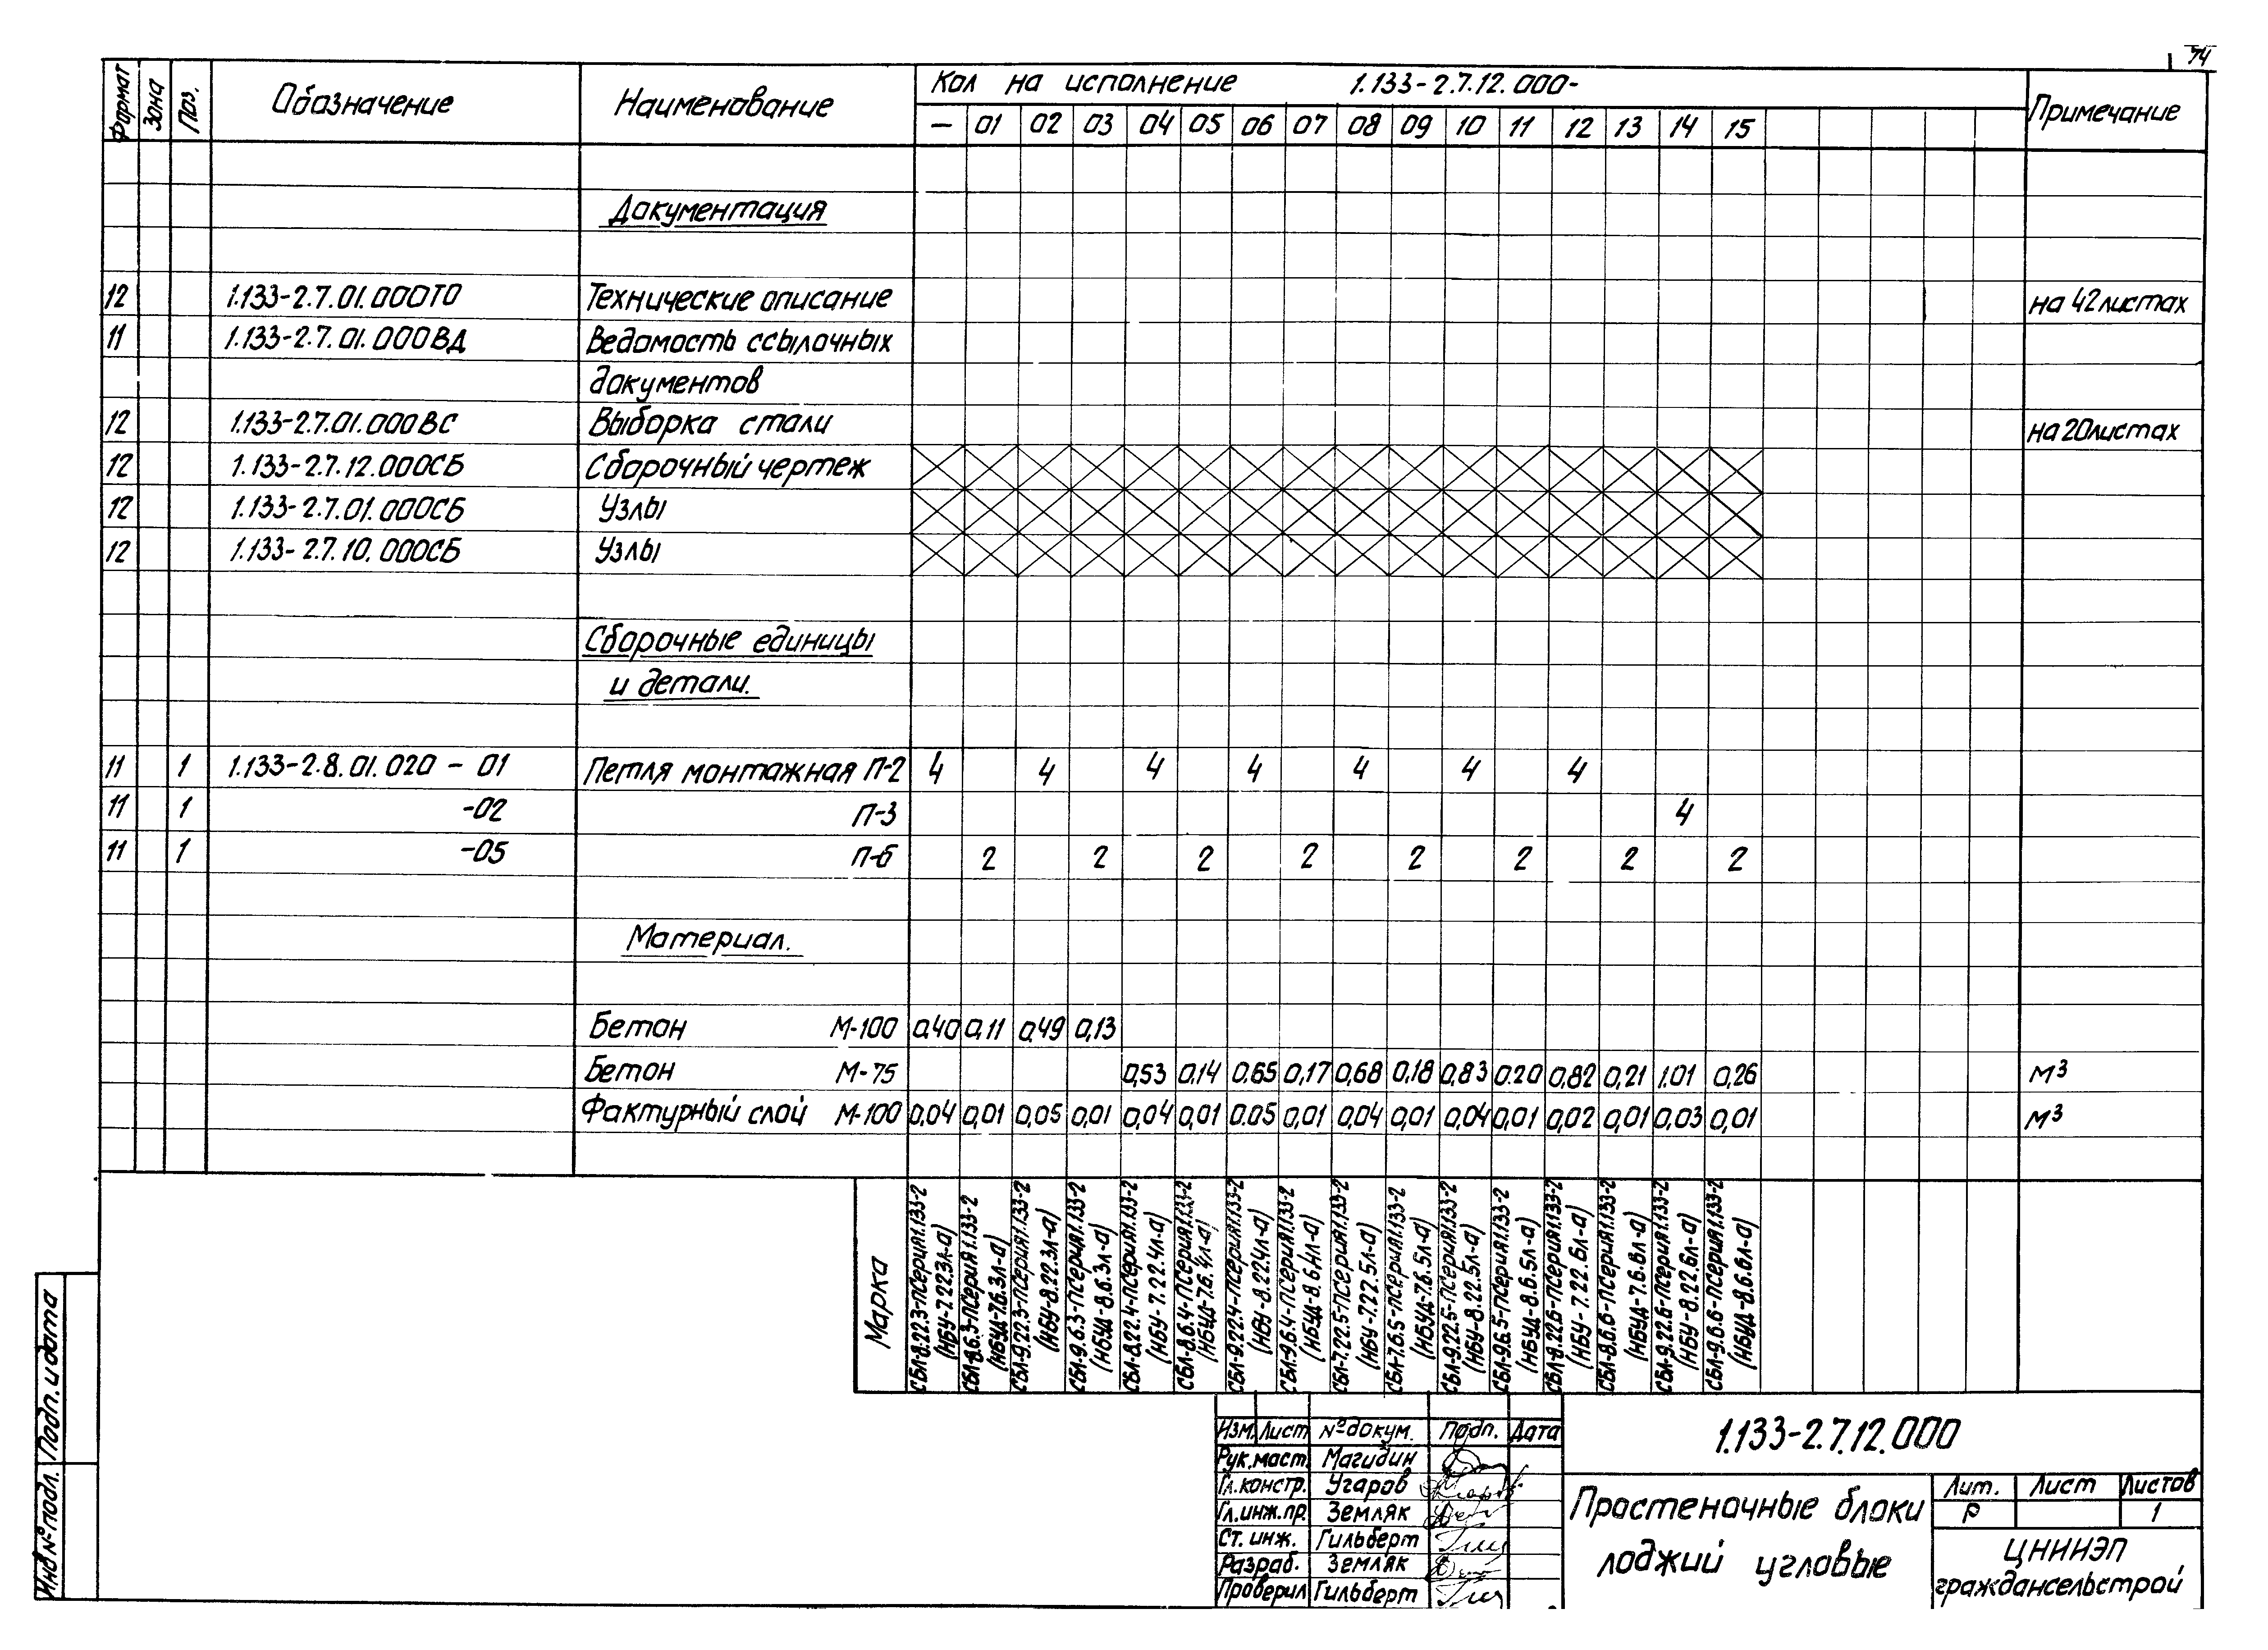 74
Формат Зона Поз. Обозначение Наименование Кол на исполнение 1.133-2.7.12.000- Примечание
— 01 02 03 04 05 06 07 08 09 10 11 12 13 14 15
Документация
12 1.133-2.7.01.000ТО Технические описание на 42 листах
11 1.133-2.7.01.000ВД Ведомость ссылочных
документов
12 1.133-2.7.01.000ВС Выборка стали на 20 листах
12 1.133-2.7.12.000СБ Сборочный чертеж
12 1.133-2.7.01.000СБ Узлы
12 1.133-2.7.10.000СБ Узлы
Сборочные единицы
и детали.
11 1 1.133-2.8.01.020 - 01 Петля монтажная П-2 4 4 4 4 4 4 4
11 1 -02 П-3 4
11 1 -05 П-6 2 2 2 2 2 2 2 2
Материал.
Бетон М-100 0,40 0,11 0,49 0,13
Бетон М-75 0,53 0,14 0.65 0,17 0,68 0,18 0,83 0.20 0,82 0,21 1.01 0,26 м³
Фактурный слой М-100 0,04 0,01 0,05 0,01 0,04 0,01 0.05 0,01 0,04 0,01 0,04 0,01 0,02 0,01 0,03 0,01 м³
Марка
СБЛ-8.22.3-П серия 1.133-2
(НБУ-7.22.3л-а)
СБЛ-8.6.3-П серия 1.133-2
(НБУД-7.6.3л-а)
СБЛ-9.22.3-П серия 1.133-2
(НБУ-8.22.3л-а)
СБЛ-9.6.3-П серия 1.133-2
(НБУД-8.6.3л-а)
СБЛ-8.22.4-П серия 1.133-2
(НБУ-7.22.4л-а)
СБЛ-8.6.4-П серия 1.133-2
(НБУД-7.6.4л-а)
СБЛ-9.22.4-П серия 1.133-2
(НБУ-8.22.4л-а)
СБЛ-9.6.4-П серия 1.133-2
(НБУД-8.6.4л-а)
СБЛ-7.22.5-П серия 1.133-2
(НБУ-7.22.5л-а)
СБЛ-7.6.5-П серия 1.133-2
(НБУД-7.6.5л-а)
СБЛ-9.22.5-П серия 1.133-2
(НБУ-8.22.5л-а)
СБЛ-9.6.5-П серия 1.133-2
(НБУД-8.6.5л-а)
СБЛ-8.22.6-П серия 1.133-2
(НБУ-7.22.6л-а)
СБЛ-8.6.6-П серия 1.133-2
(НБУД-7.6.6л-а)
СБЛ-9.22.6-П серия 1.133-2
(НБУ-8.22.6л-а)
СБЛ-9.6.6-П серия 1.133-2
(НБУД-8.6.6л-а)
Инв № подл. Подп. и дата
Изм. Лист № докум. Подп. Дата
Рук. маст. Магидин
Гл. констр. Угаров
Гл. инж. пр. Земляк
Ст. инж. Гильберт
Разраб. Земляк
Проверил Гильберт
1.133-2.7.12.000
Простеночные блоки
лоджий угловые
Лит. Лист Листов
Р 1
ЦНИИЭП
граждансельстрой